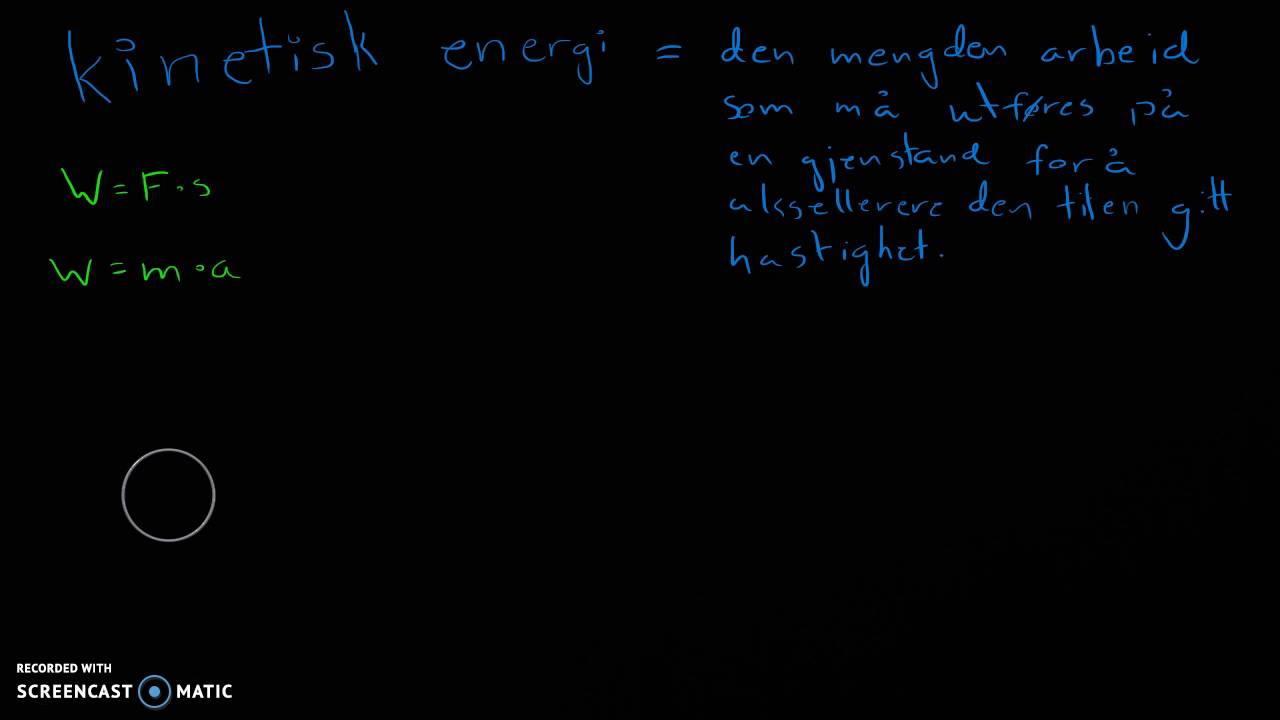 kinetisk energi = den mengden arbeid
som må utføres på
en gjenstand for å
akssellerere den til en gitt
hastighet.
W = F · s
W = m · a
RECORDED WITH
SCREENCAST MATIC